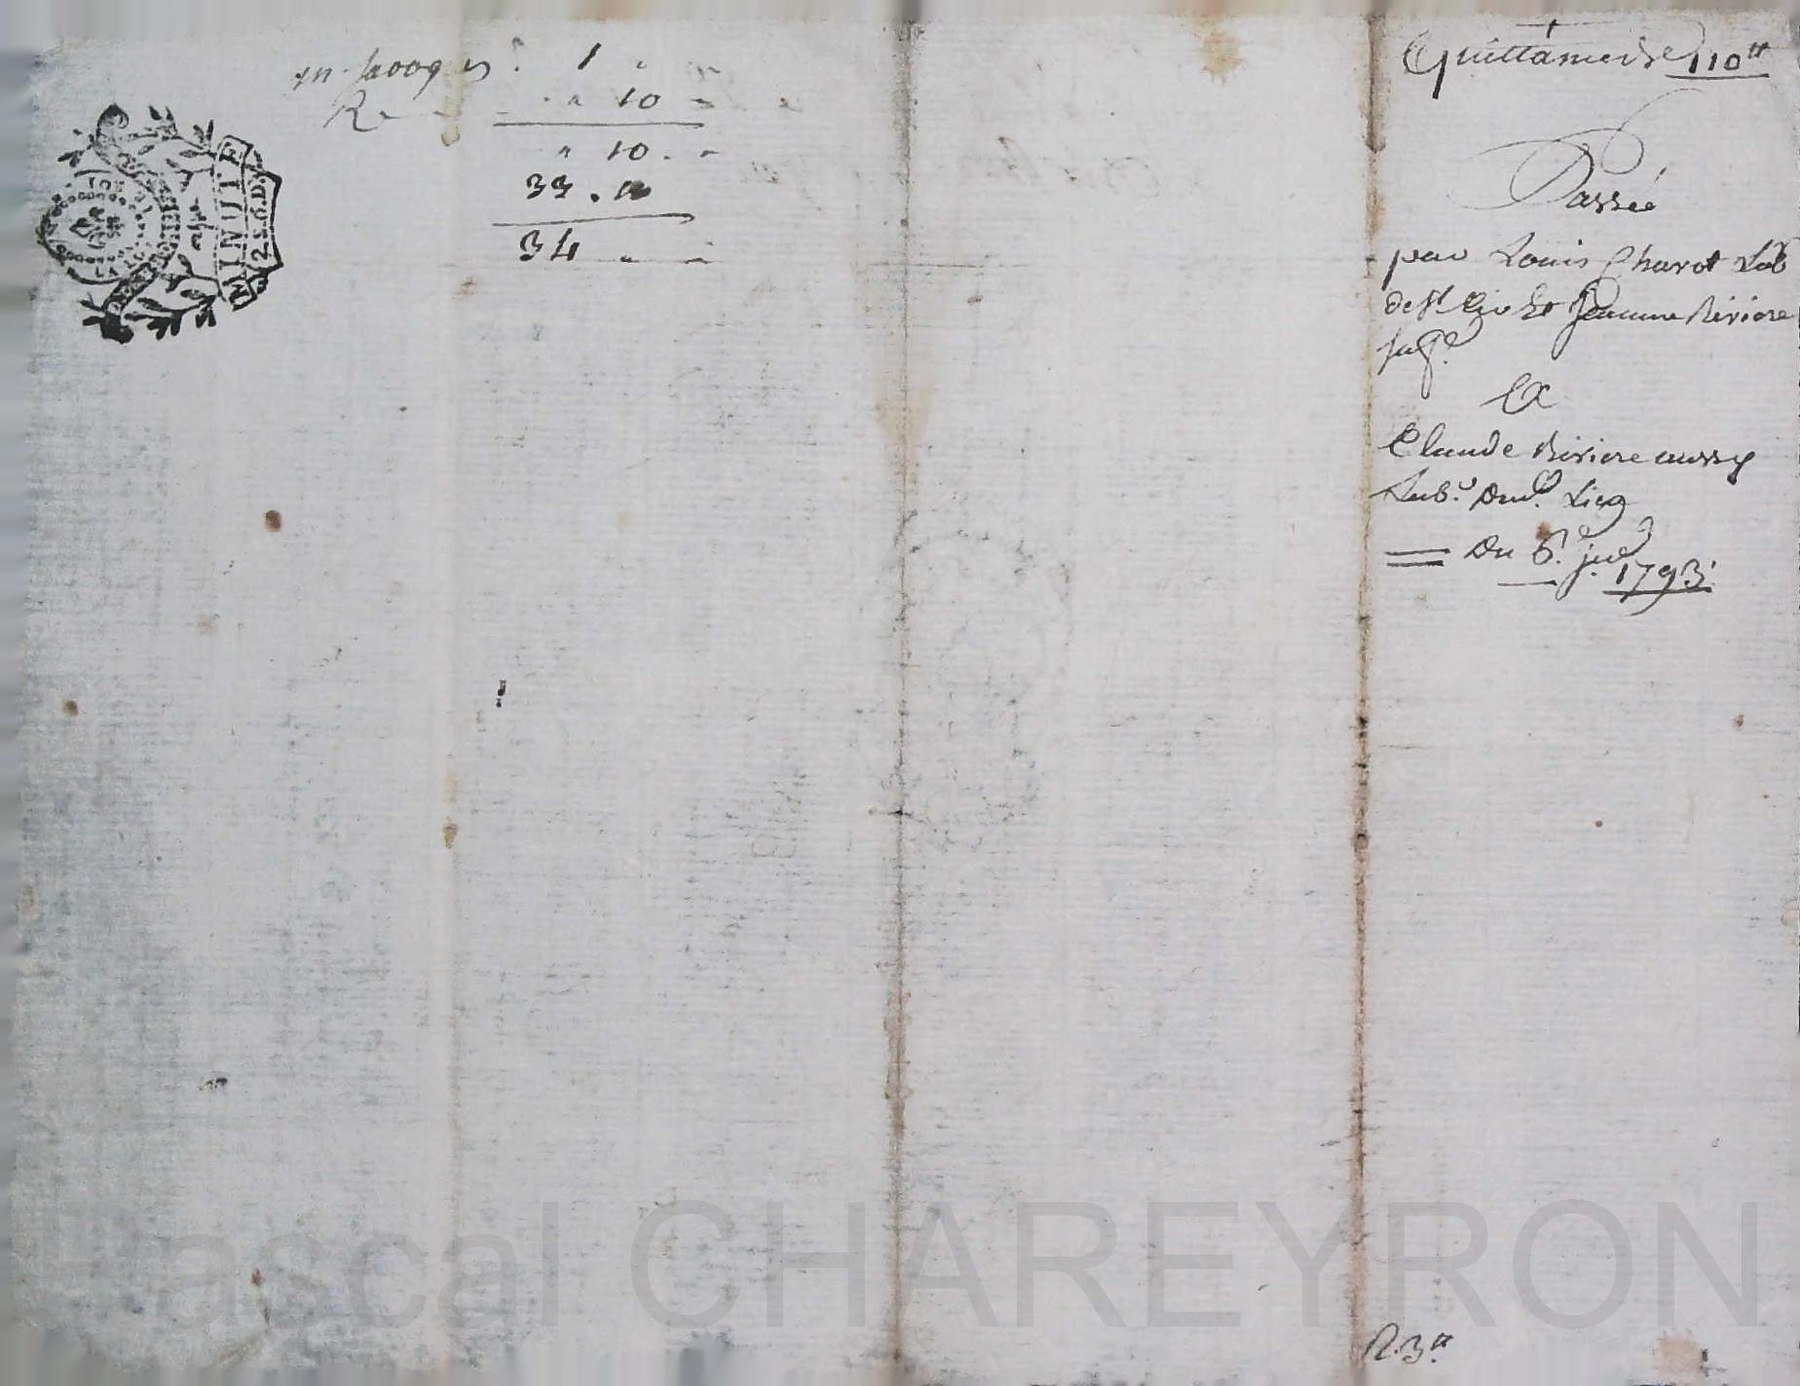 1
R 10
10
33
34
MINUTE
2 S. 6 D.
Quittance de 110 tt
Passée
par Louis Charot Lab
de St Cir Et Jeanne Riviere
sa fe
A
Claude Riviere aussy
Lab. dud. Lieu
Du 6. jer
1793
R. 3 tt
Pascal CHAREYRON